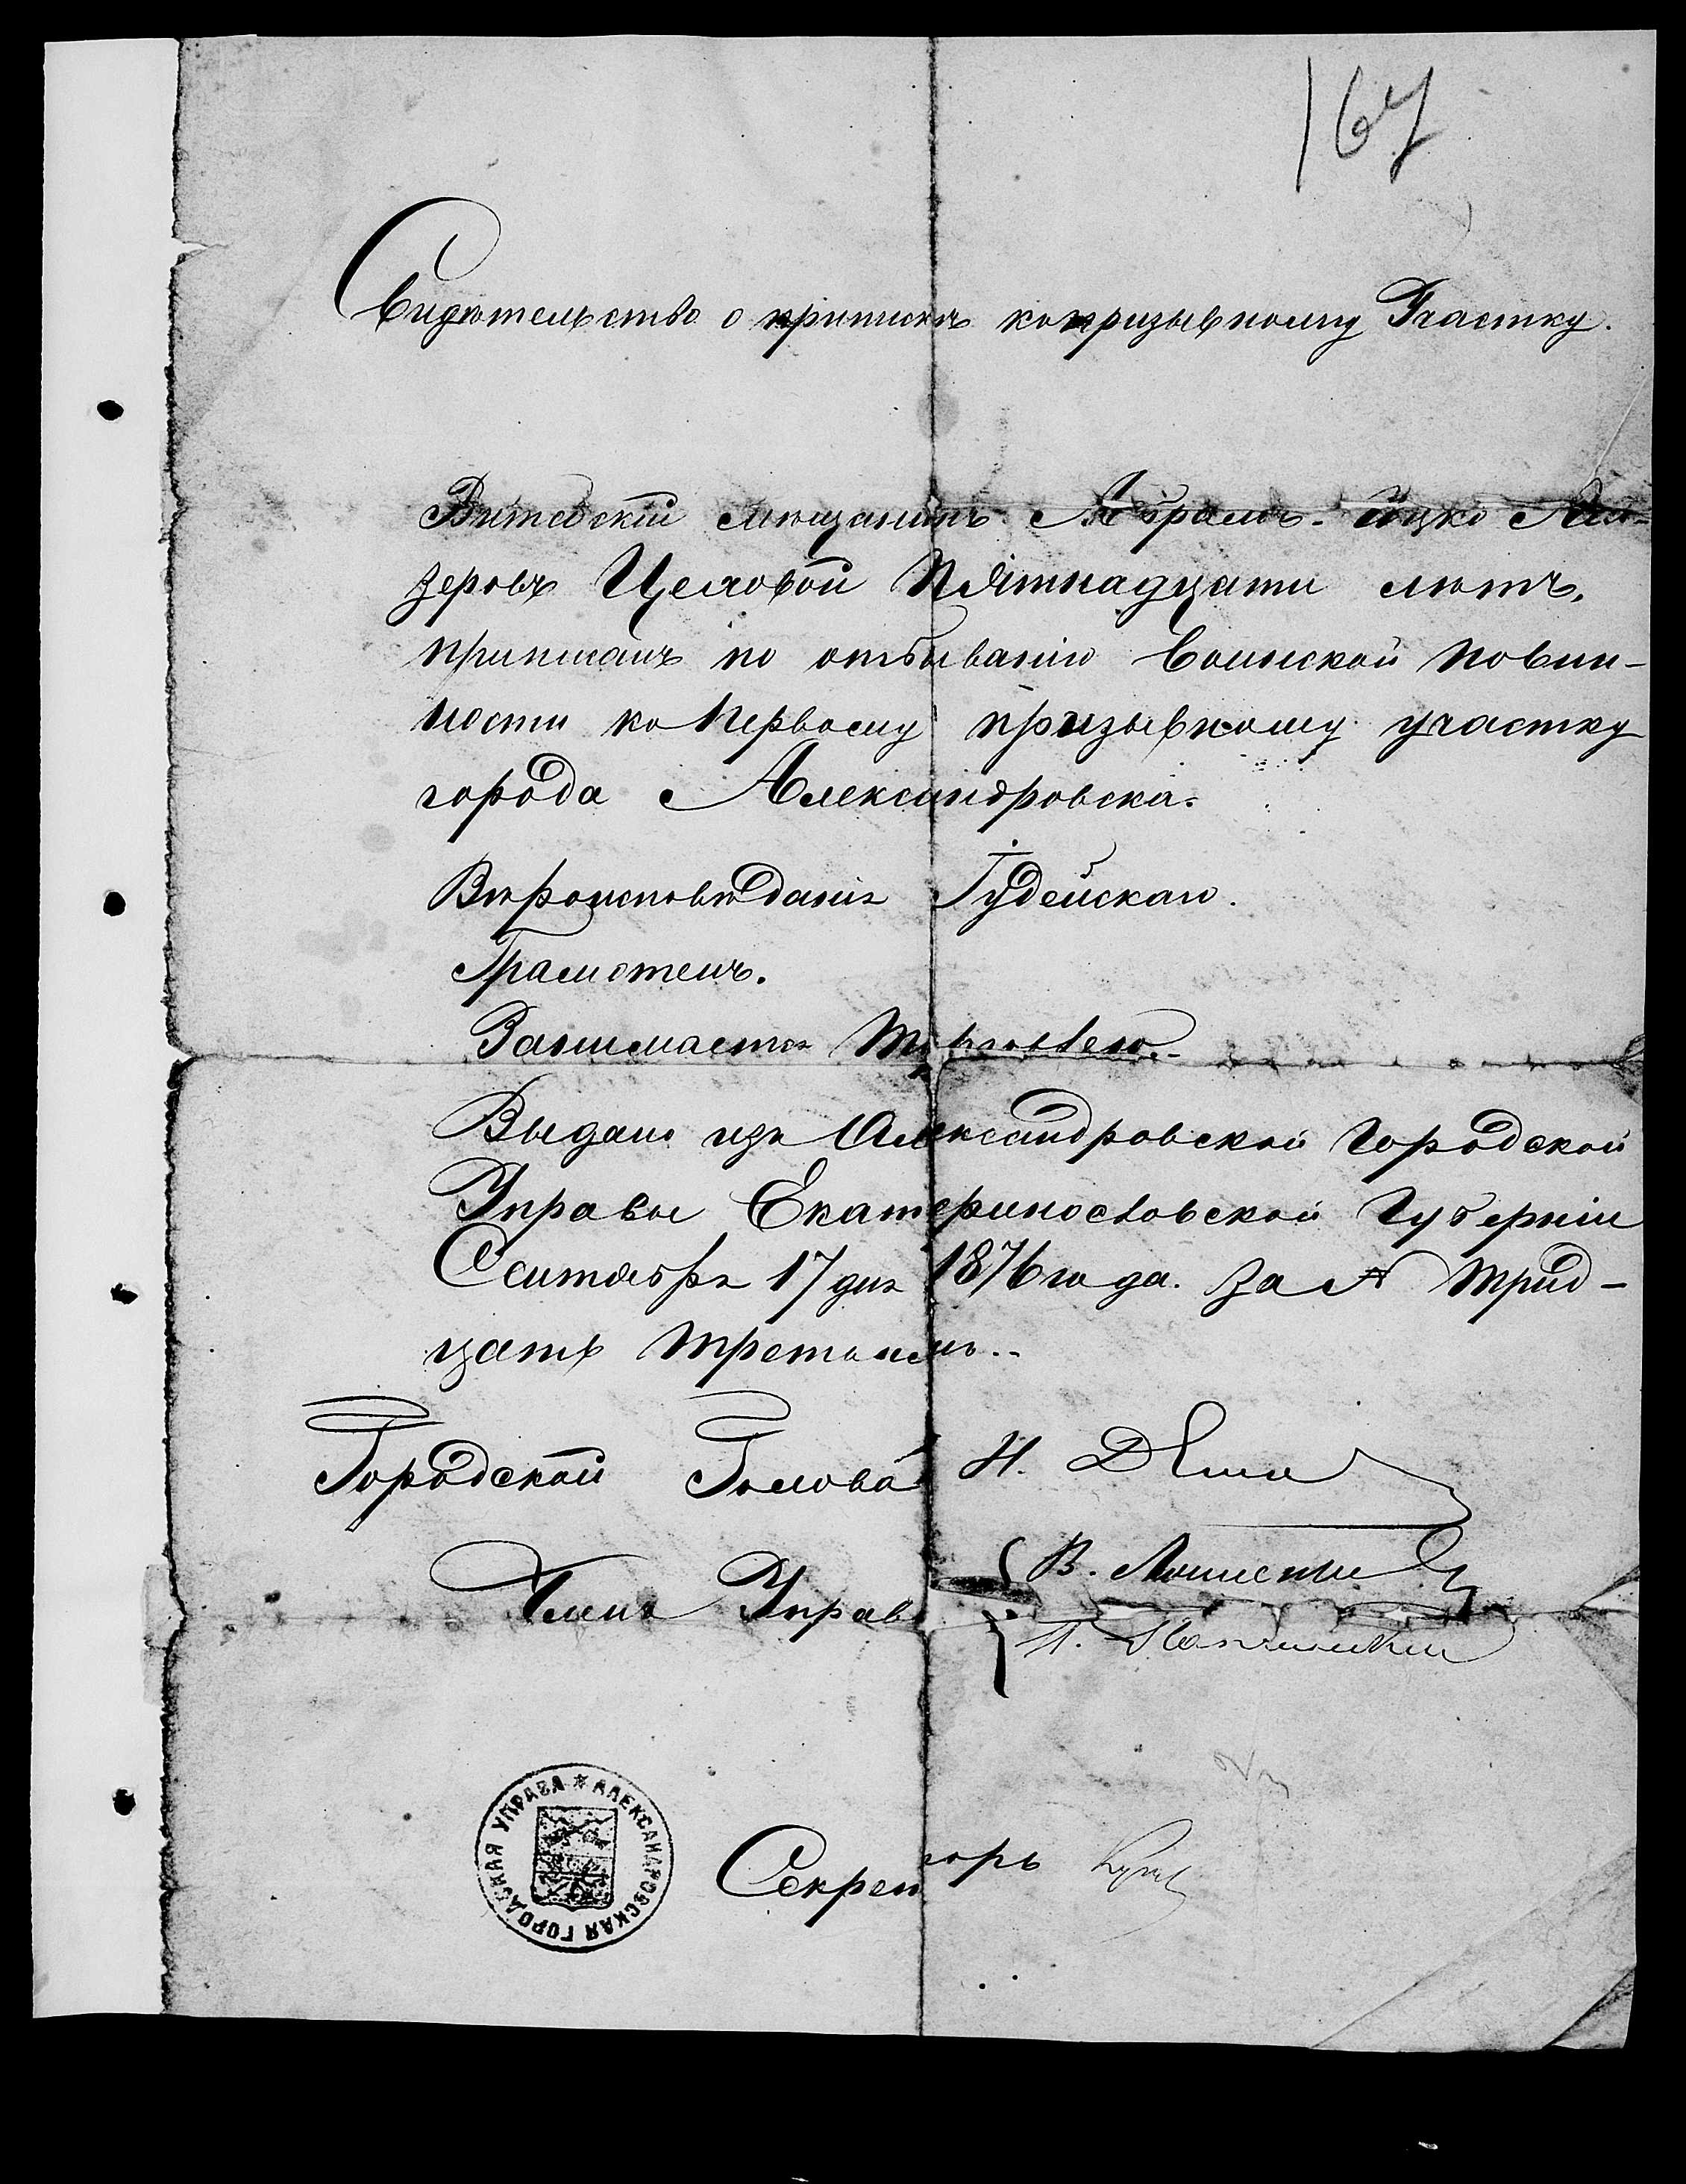 167
Свидѣтельство о припискѣ къ призывному Участку.
Витебскій мѣщанинъ Абрамъ-Ицко Лей-
зеровъ Целовой Пятнадцати лѣтъ,
приписанъ по отбыванію Воинской повин-
ности ко Первому призывному участку
города Александровска.
Вѣроисповѣданія Іудейскаго.
Грамотенъ.
Занимается Торговлею.
Выдано изъ Александровской Городской
Управы Екатеринославской Губерніи
Сентября 17 дня 1876 года. За № трид-
цать третьимъ..
Городской Голова Н.
Члены Управы В.
П.
АЛЕКСАНДРОВСКАЯ ГОРОДСКАЯ УПРАВА
Секретарь